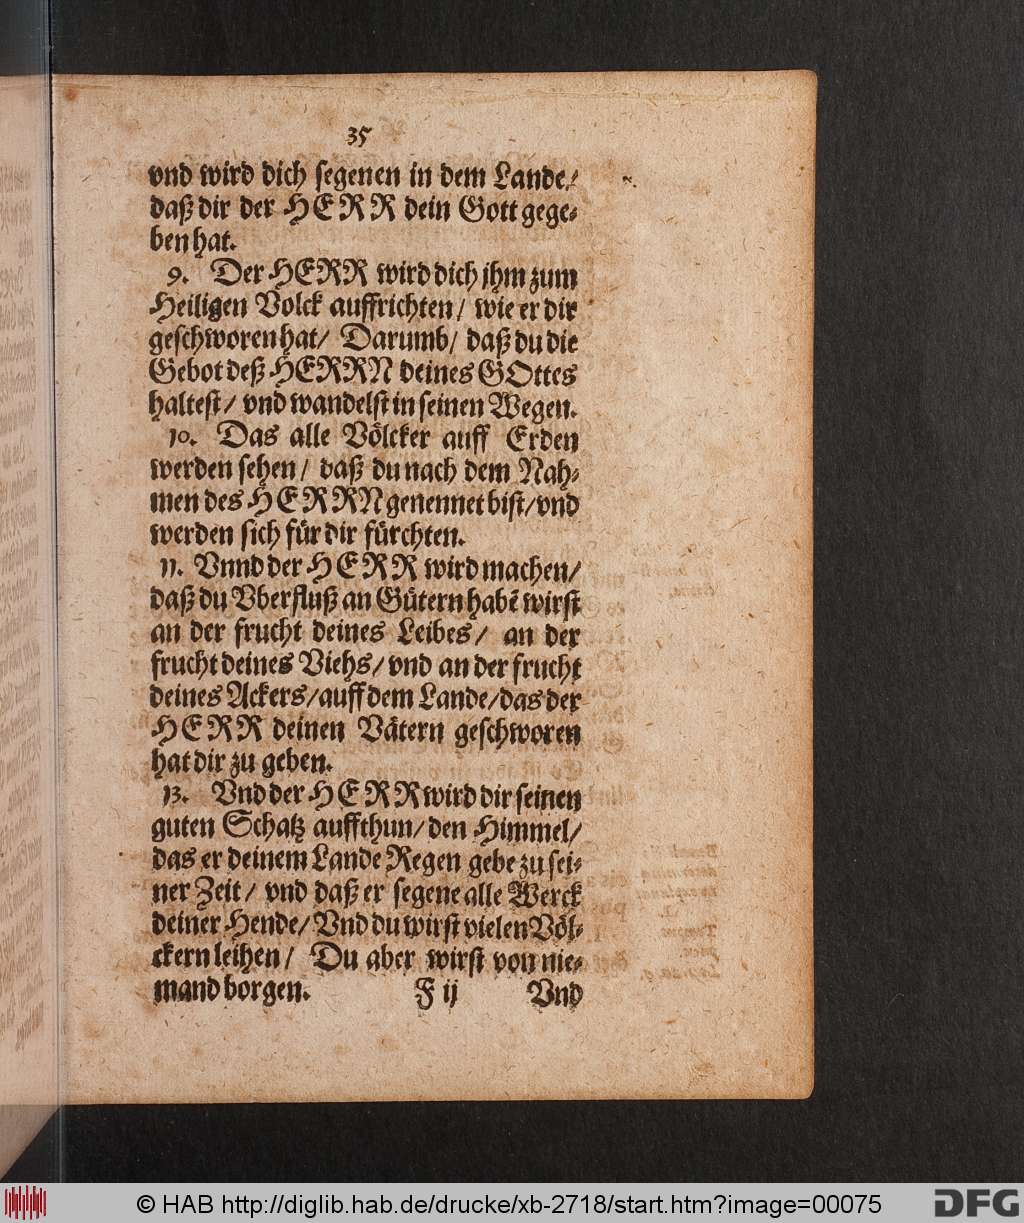 35
vnd wird dich segenen in dem Lande/
daß dir der HERR dein Gott gege⸗
ben hat.
9. Der HERR wird dich jhm zum
Heiligen Volck auffrichten/ wie er dir
geschworen hat/ Darumb/ daß du die
Gebot deß HERRN deines GOttes
haltest/ vnd wandelst in seinen Wegen.
10. Das alle Völcker auff Erden
werden sehen/ daß du nach dem Nah⸗
men des HERRN genennet bist/ vnd
werden sich für dir fürchten.
11. Vnnd der HERR wird machen/
daß du Vberfluß an Gütern habẽ wirst
an der frucht deines Leibes/ an der
frucht deines Viehs/ vnd an der frucht
deines Ackers/ auff dem Lande/ das der
HERR deinen Vätern geschworen
hat dir zu geben.
13. Vnd der HERR wird dir seinen
guten Schatz auffthun/ den Himmel/
das er deinem Lande Regen gebe zu sei⸗
ner Zeit/ vnd daß er segene alle Werck
deiner Hende/ Vnd du wirst vielen Völ⸗
ckern leihen/ Du aber wirst von nie⸗
mand borgen. F ij Vnd
© HAB http://diglib.hab.de/drucke/xb-2718/start.htm?image=00075
DFG